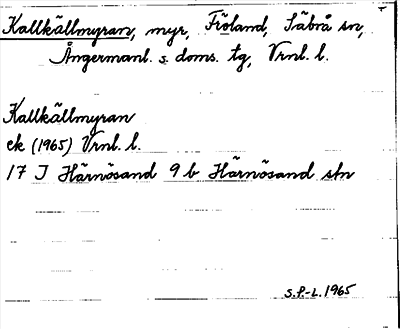 Kallkällmyran, myr, Fröland, Säbrå sn,
Ångermanl. s. doms. tg, Vrnl. l.
Kallkällmyran
ek (1965) Vrnl. l.
17 J Härnösand 9 b Härnösand stn
S.P.-L. 1965